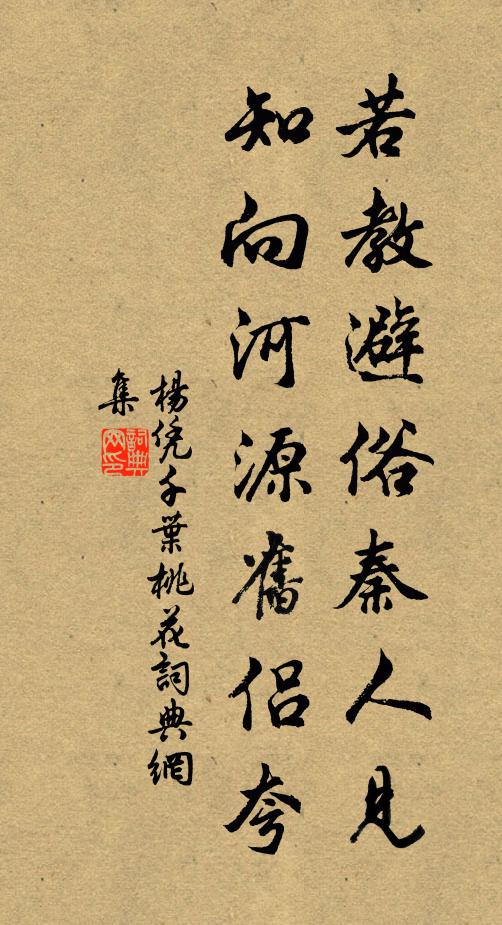 若教避俗秦人見
知向河源舊侶夸
楊凭千葉桃花詞典網
集
詞典
网印